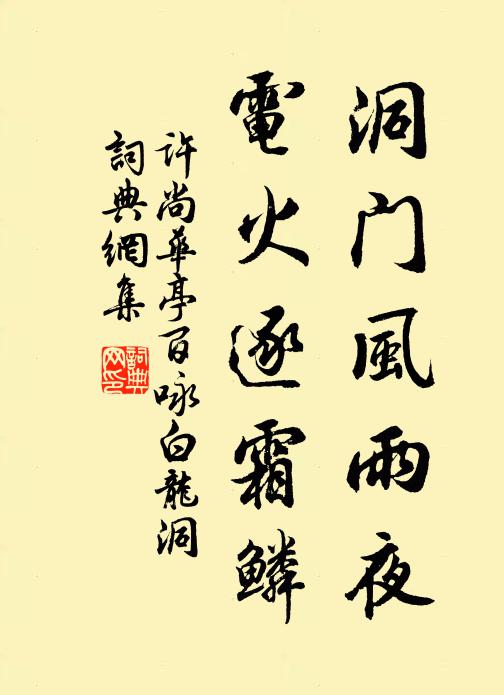 洞门風雨夜
電火逐霜鱗
许尚華亭百咏白龍洞
詞典網集
詞典网印